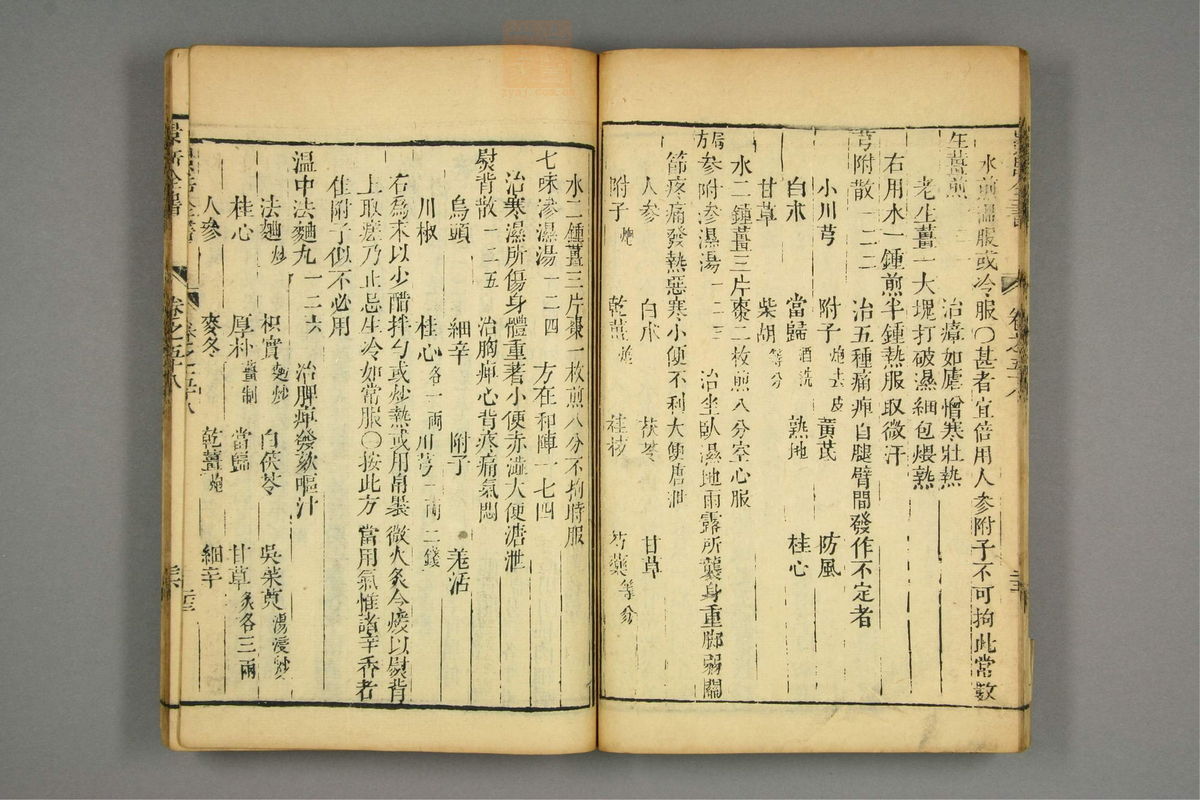 水煎溫服或冷服〇甚者宜倍用人參附子不可拘此常數
生薑煎
治瘴如瘧憎寒壯熱
老生薑一大塊打破濕細包煨熟
右用水一鍾煎半鍾熱服取微汗
芎附散 一二二 治五種痛痺自腿臂間發作不定者
小川芎 附子炮去皮 黃芪 防風
白朮 當歸酒洗 熟地 桂心
甘草 柴胡等分
水二鍾薑三片棗二枚煎八分空心服
局方參附渗濕湯 一二三 治坐臥濕地雨露所襲身重脚弱關
節疼痛發熱惡寒小便不利大便唐泄
人參 白朮 茯苓 甘草
附子炮 乾薑炮 桂枝 芍藥等分
水二鍾薑三片棗一枚煎八分不拘時服
七味渗濕湯 一二四 方在和陣一七四
治寒濕所傷身體重著小便赤澁大便溏泄
熨背散 一二五 治胸痺心背疼痛氣悶
烏頭 細辛 附子 羌活
川椒 桂心各一兩 川芎一兩二錢
右爲末以少醋拌勻或炒熱或用帛裹微火炙令煖以熨背
上取瘥乃止忌生冷如常服〇按此方當用氣惟諸辛香者
佳附子似不必用
溫中法麯丸 一二六 治脾痺發欬嘔汁
法麯炒 枳實麩炒 白茯苓 吳茱萸湯浸炒
桂心 厚朴薑制 當歸 甘草炙各三兩
人參 麥冬 乾薑炮 細辛
景岳全書 卷之五十八